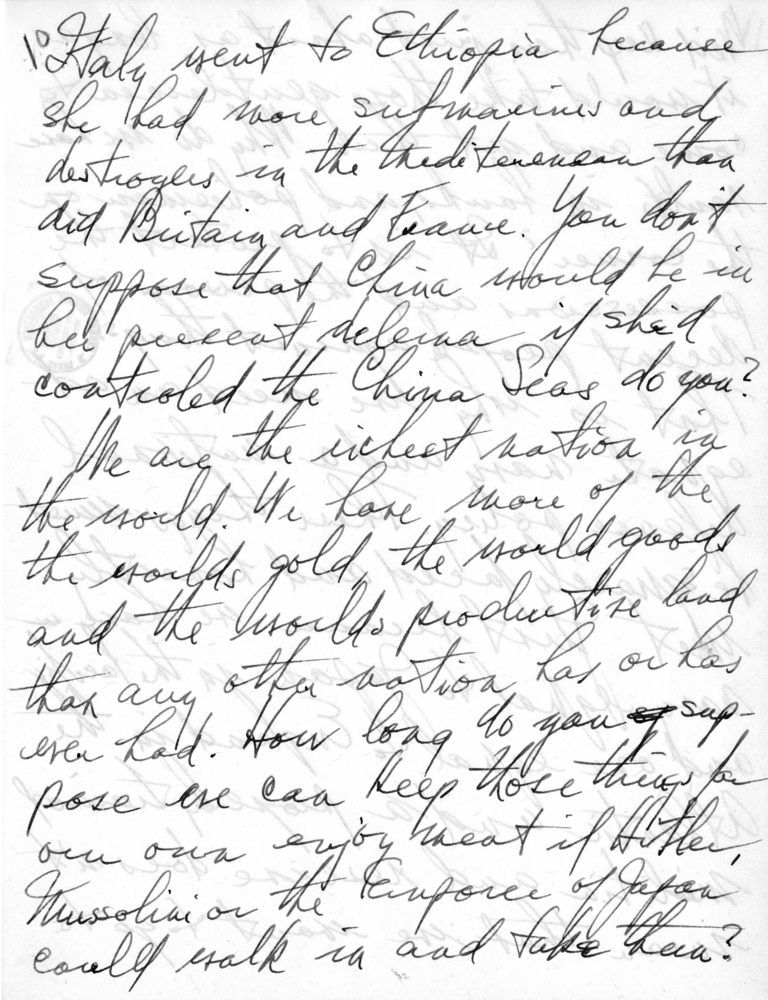 10
Italy went to Ethiopia because
she had more submarines and
destroyers in the Mediterenean than
did Britain and France. You don't
suppose that China would be in
her present delema if she'd
controled the China Seas do you?
We are the richest nation in
the world. We have more of the
the worlds gold, the world goods
and the worlds productive land
than any other nation has or has
ever had. How long do you sup-
pose we can keep those things for
our own enjoyment if Hitler,
Mussolini or the Emporer of Japan
could walk in and take them?